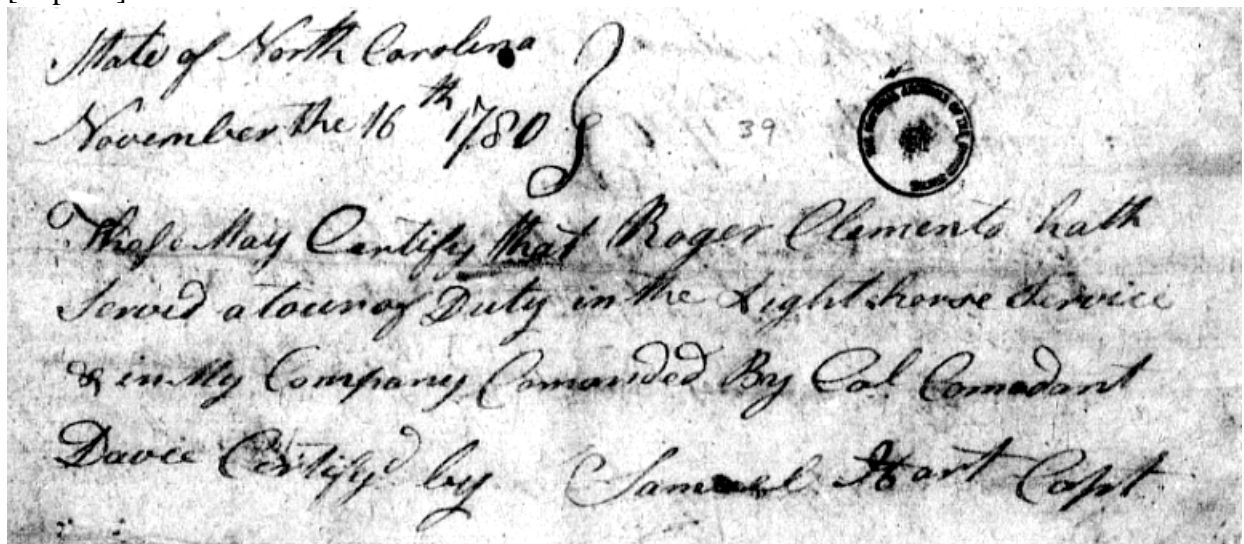 State of North Carolina
November the 16th 1780
39
These May Certify that Roger Clements hath
Served a tour of Duty in the Light horse Service
& in My Company Comanded By Col. Comadant
Davie Certifyd by Samuel Hart Capt